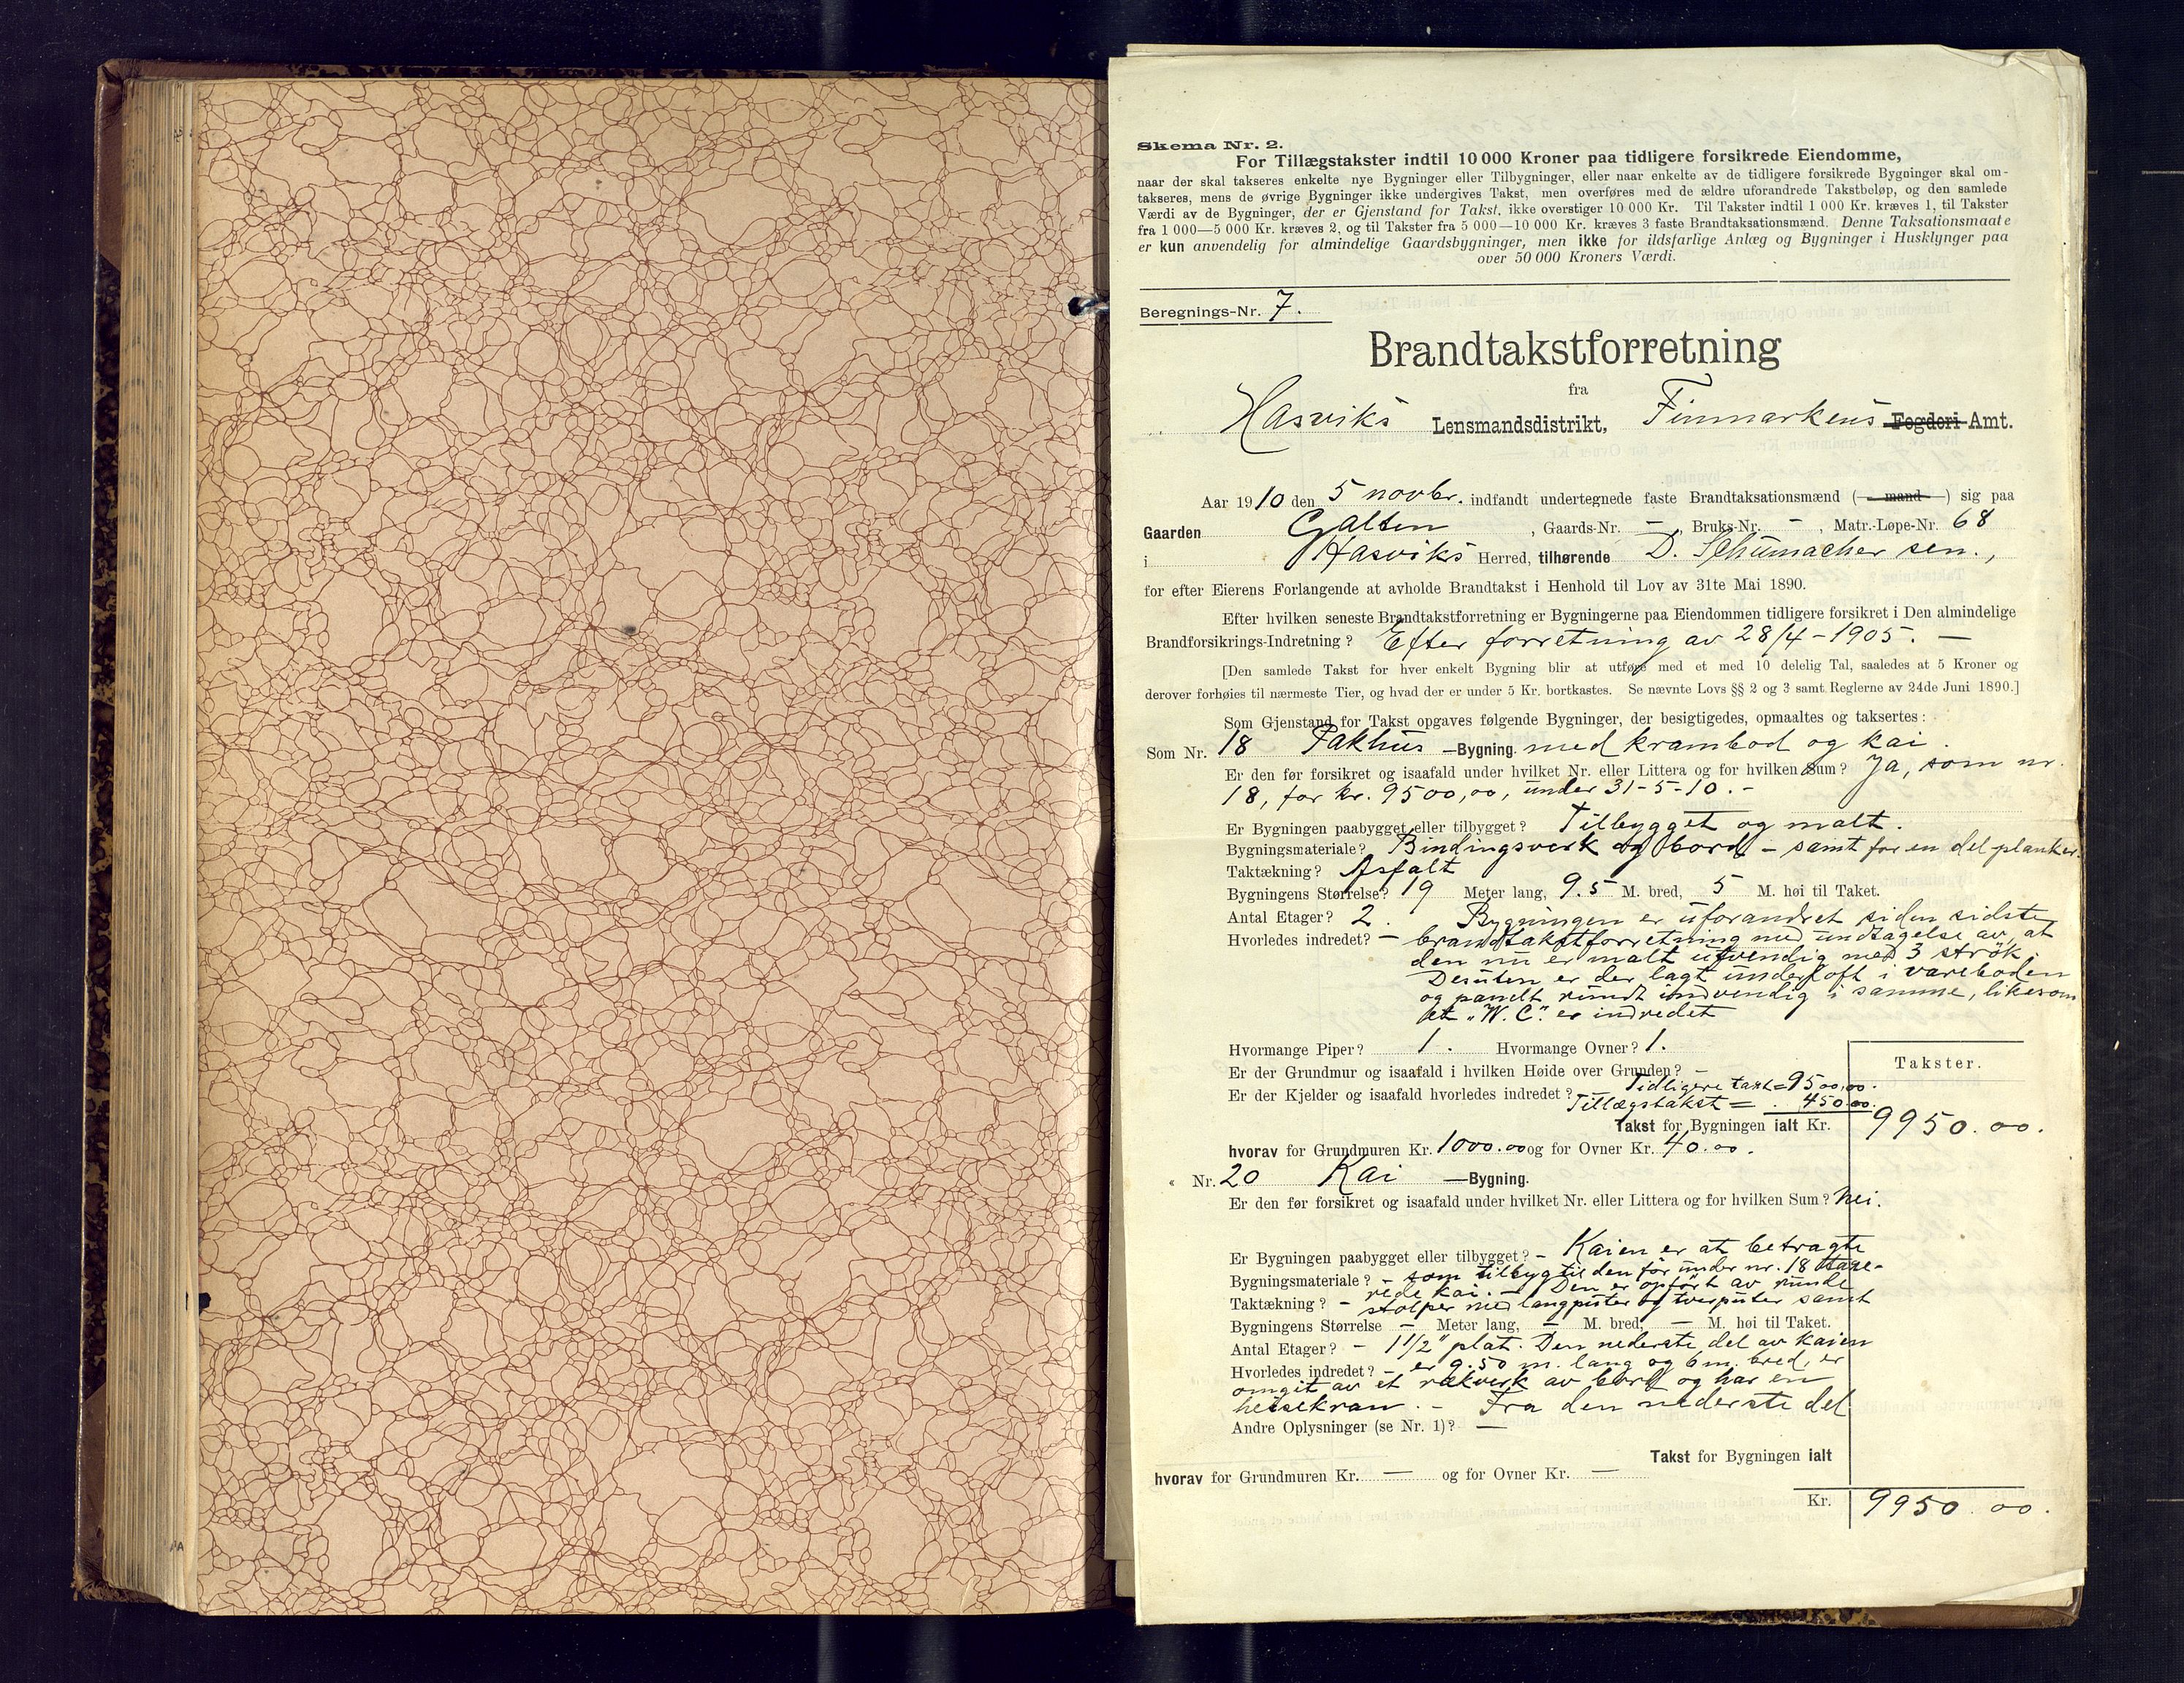 Skema Nr. 2.
For Tillægstakster indtil 10 000 Kroner paa tidligere forsikrede Eiendomme,
naar der skal takseres enkelte nye Bygninger eller Tilbygninger, eller naar enkelte av de tidligere forsikrede Bygninger skal om-
takseres, mens de øvrige Bygninger ikke undergives Takst, men overføres med de ældre uforandrede Takstbeløp, og den samlede
Værdi av de Bygninger, der er Gjenstand for Takst, ikke overstiger 10 000 Kr. Til Takster indtil 1 000 Kr. kræves 1, til Takster
fra 1 000—5 000 Kr. kræves 2, og til Takster fra 5 000—10 000 Kr. kræves 3 faste Brandtaksationsmænd. Denne Taksationsmaate
er kun anvendelig for almindelige Gaardsbygninger, men ikke for ildsfarlige Anlæg og Bygninger i Husklynger paa
over 50 000 Kroners Værdi.
Beregnings-Nr. 7.
Brandtakstforretning
fra
Hasviks Lensmandsdistrikt, Finmarkens Fogderi Amt.
Aar 1910 den 5 novbr. indfandt undertegnede faste Brandtaksationsmænd (— mand —) sig paa
Gaarden Galten, Gaards-Nr. -, Bruks-Nr. -, Matr.-Løpe-Nr. 68
i Hasviks Herred, tilhørende D. Schumacher sen.,
for efter Eierens Forlangende at avholde Brandtakst i Henhold til Lov av 31te Mai 1890.
Efter hvilken seneste Brandtakstforretning er Bygningerne paa Eiendommen tidligere forsikret i Den almindelige
Brandforsikrings-Indretning? Efter forretning av 28/4 - 1905. —
[Den samlede Takst for hver enkelt Bygning blir at utføre med et med 10 delelig Tal, saaledes at 5 Kroner og
derover forhøies til nærmeste Tier, og hvad der er under 5 Kr. bortkastes. Se nævnte Lovs §§ 2 og 3 samt Reglerne av 24de Juni 1890.]
Som Gjenstand for Takst opgaves følgende Bygninger, der besigtigedes, opmaaltes og taksertes:
Som Nr. 18 Pakhus —Bygning. med krambod og kai.
Er den før forsikret og isaafald under hvilket Nr. eller Littera og for hvilken Sum? Ja, som nr.
18, for kr. 9500,00, under 31-5-10. -
Er Bygningen paabygget eller tilbygget? Tilbygget og malt.
Bygningsmateriale? Bindingsverk og bord - samt for en del planker.
Taktækning? Asfalt
Bygningens Størrelse? 19 Meter lang, 9.5 M. bred, 5 M. høi til Taket.
Antal Etager? 2. Bygningen er uforandret siden sidste
Hvorledes indredet? - brandtakstforretning med undtagelse av, at
den nu er malt utvendig med 3 strök.
Desuten er der lagt underloft i vareboden
og panelt rundt indvendig i samme, likesom
et "W.C." er indredet
Hvormange Piper? 1. Hvormange Ovner? 1.
Takster.
Er der Grundmur og isaafald i hvilken Høide over Grunden? -
Tidligere takst = 9500,00.
Er der Kjelder og isaafald hvorledes indredet?
Tillægstakst = 450.00.
Takst for Bygningen ialt Kr. 9950.00.
hvorav for Grundmuren Kr. 1000.00 og for Ovner Kr. 40.00.
" Nr. 20 Kai —Bygning.
Er den før forsikret og isaafald under hvilket Nr. eller Littera og for hvilken Sum? Nei.
Er Bygningen paabygget eller tilbygget? - Kaien er at betragte
Bygningsmateriale? - som tilbyg til den før under nr. 18 takse-
rede kai. - Den er opført av runde
Taktækning? - stolper med langputer og tverputer samt
Bygningens Størrelse — Meter lang, — M. bred, — M. høi til Taket.
Antal Etager? - 1 1/2" plat. Den nederste del av kaien
Hvorledes indredet? - er 9.50 m. lang og 6 m. bred, er
omgit av et rækverk av bord og har en
heisekran. - Fra den nederste del
Andre Oplysninger (se Nr. 1)? —
Takst for Bygningen ialt
hvorav for Grundmuren Kr. — og for Ovner Kr. —
Kr. 9950.00.